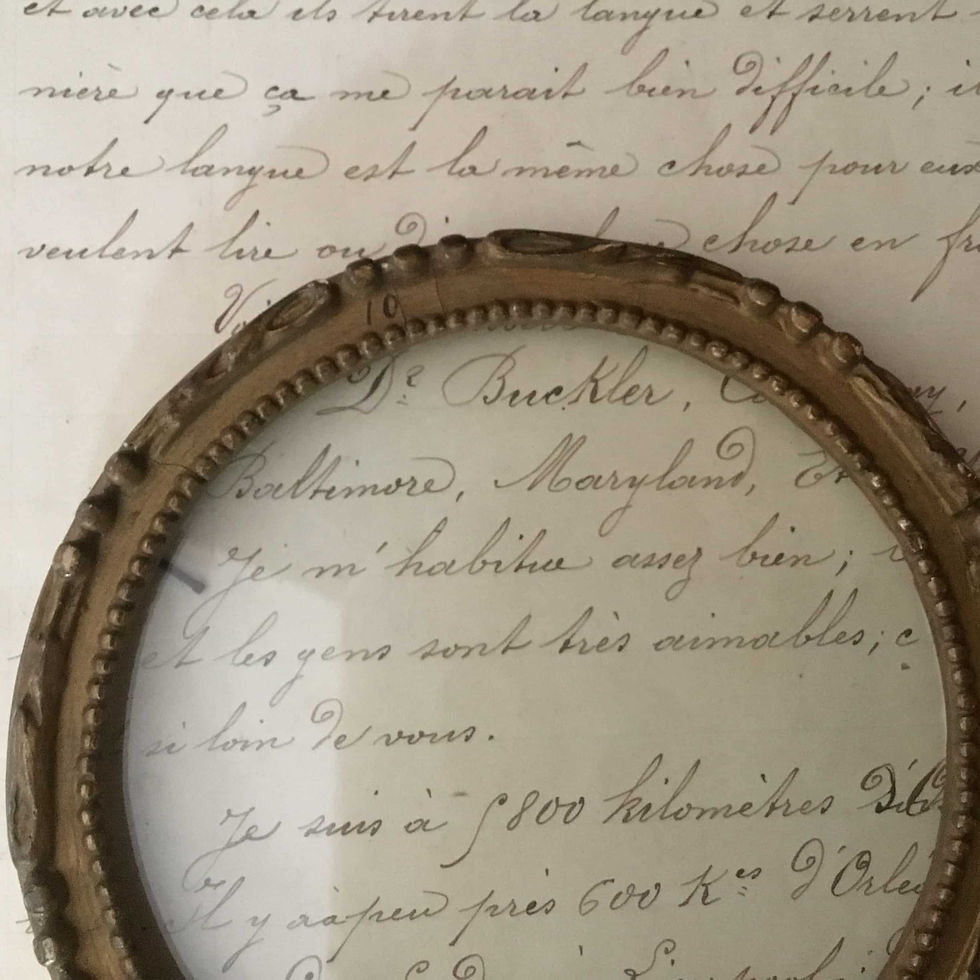 et avec cela ils tirent la langue et serrent
nière que ça me parait bien difficile; il
notre langue est la même chose pour eux
veulent lire ou chose en fr
Dr Buckler,
Baltimore, Maryland, Et
Je m'habitue assez bien;
et les gens sont très aimables; c
si loin de vous.
Je suis à 5800 kilomètres
Il y a à peu près 600 Kes d'Orlé